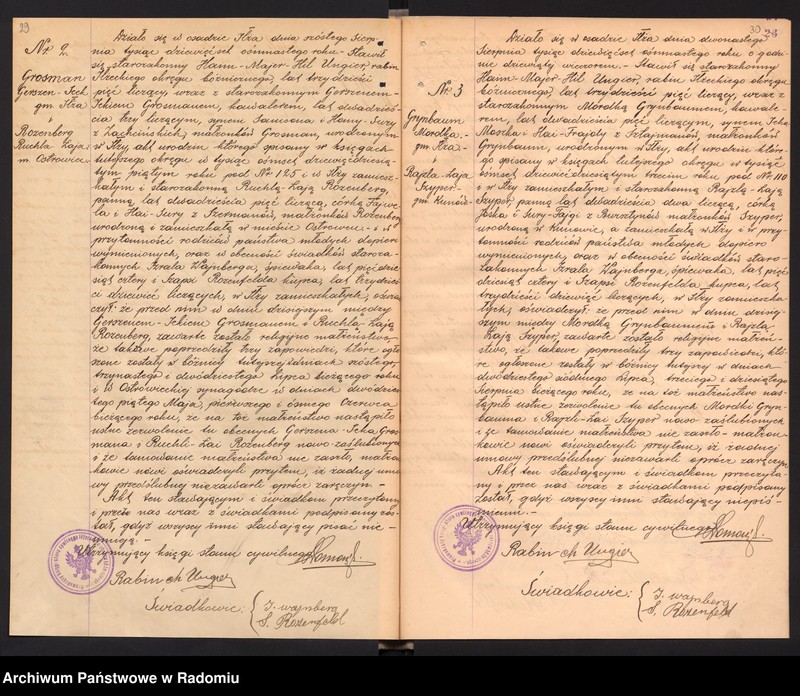 29
Nr 2
Grosman
Gerszen-Icek
gm. Iłża
i
Rozenberg
Ruchla Łaja
m. Ostrowiec
Działo się w osadzie Iłża dnia szóstego Sierp-
nia tysiąc dziewięćset ośmnastego roku - Stawił
się starozakonny Haim-Majer-Hil Ungier, rabin
Iłżeckiego okręgu bóżniczego, lat trzydzieści
pięć liczący, wraz z starozakonnym Gerszenem-
Ickiem Grosmanem, kawalerem, lat dwadzieś-
cia trzy liczącym, synem Samsona i Hany-Sury
z małżonków Grosman, urodzonym
w Iłży, akt urodzin którego spisany w księgach
tutejszego okręgu w tysiąc ośmset dziewięćdziesią-
tym piątym roku pod Nr 125 i w Iłży zamiesz-
kałym i starozakonną Ruchlą-Łają Rozenberg,
panną, lat dwadzieścia pięć liczącą, córką Fajwe-
la i Hai-Sury z Szermanów, małżonków Rozenberg
urodzoną i zamieszkałą w mieście Ostrowcu - i w
przytomności rodziców państwa młodych dopiero
wymienionych, oraz w obecności świadków staroza-
konnych Szrala Wajnberga, śpiewaka, lat pięćdzie-
siąt cztery i Szapsi Rozenfelda kupca, lat trzydzieś-
ci dziewięć liczących, w Iłży zamieszkałych, oświad-
czył: że przed nim w dniu dzisiejszym między
Gerszenem-Ickiem Grosmanem i Ruchlą-Łają
Rozenberg, zawarte zostało religijne małżeństwo,
że takowe poprzedziły trzy zapowiedzi, które ogło-
szone zostały w bóżnicy tutejszej w dniach szóstego,
trzynastego i dwudziestego Lipca bieżącego roku
i w Ostrowieckiej synagodze w dniach dwudzies-
tego piątego Maja, pierwszego i ósmego Czerwca
bieżącego roku, że na toż małżeństwo nastąpiło
ustne zezwolenie tu obecnych Gerszena-Icka Gros-
mana i Ruchli-Łai Rozenberg nowo-zaślubionych
i że tamowanie małżeństwa nie zaszło, małżon-
kowie nowi oświadczyli przytem, iż żadnej um-
owy przedślubnej niezawarli oprócz zaręczyn. -
Akt ten stawającym i świadkom przeczytany
i przez nas wraz z świadkami podpisany zo-
stał, gdyż wszyscy inni stawający pisać nie-
umieją. -
Utrzymujący księgi stanu cywilnego
Rabin ch Ungier
Świadkowie: { J. wajnberg
S. Rozenfeld
30
Nr 3
Grynbaum
Mordka-
gm. Iłża-
i
Rajzla-Łaja
Szyper-
gm. Kunów-
Działo się w osadzie Iłża dnia dwunastego
Sierpnia tysiąc dziewięćset ośmnastego roku o godzi-
nie dziewiątej wieczorem. - Stawił się starozakonny
Haim-Majer-Hil Ungier, rabin Iłżeckiego okręgu
bóżniczego, lat trzydzieści pięć liczący, wraz z
starozakonnym Mordką Grynbaumem, kawale-
rem, lat dwadzieścia pięć liczącym, synem Icka
Moszka i Hai-Frajdy z Sztajmanów małżonków
Grynbaum, urodzonym w Iłży, akt urodzin któr-
ego spisany w księgach tutejszego okręgu w tysiąc
ośmset dziewięćdziesiątym trzecim roku pod Nr 110
i w Iłży zamieszkałym i starozakonną Rajzlą-Łają
Szyper, panną lat dwadzieścia dwa liczącą, córką
Joska i Sury-Fajgi z małżonków Szyper,
urodzoną w Kunowie, a zamieszkałą w Iłży i w przy-
tomności rodziców państwa młodych dopiero
wymienionych, oraz w obecności świadków staro-
zakonnych Szrala Wajnberga, śpiewaka, lat pięć-
dziesiąt cztery i Szapsi Rozenfelda kupca, lat
trzydzieści dziewięć liczących, w Iłży zamieszka-
łych, oświadczył: że przed nim w dniu dzisiej-
szym między Mordką Grynbaumem i Rajzlą
Łają Szyper, zawarte zostało religijne małżeń-
stwo, że takowe poprzedziły trzy zapowiedzi, któ-
re ogłoszone zostały w bóżnicy tutejszej w dniach
dwudziestego siódmego Lipca, trzeciego i dziesiątego
Sierpnia bieżącego roku, że na toż małżeństwo nas-
tąpiło ustne zezwolenie tu obecnych Mordki Gryn-
bauma i Rajzli-Łai Szyper nowo-zaślubionych
i że tamowanie małżeństwa nie zaszło - małżon-
kowie nowi oświadczyli przytem, iż żadnej
umowy przedślubnej niezawarli oprócz zaręczyn.
Akt ten stawającym i świadkom przeczyta-
ny i przez nas wraz z świadkami podpisany
został, gdyż wszyscy inni stawający niepiś-
mienni. -
Utrzymujący księgi stanu cywilnego
Rabin ch Ungier
Świadkowie: { J. wajnberg
S. Rozenfeld
Archiwum Państwowe w Radomiu